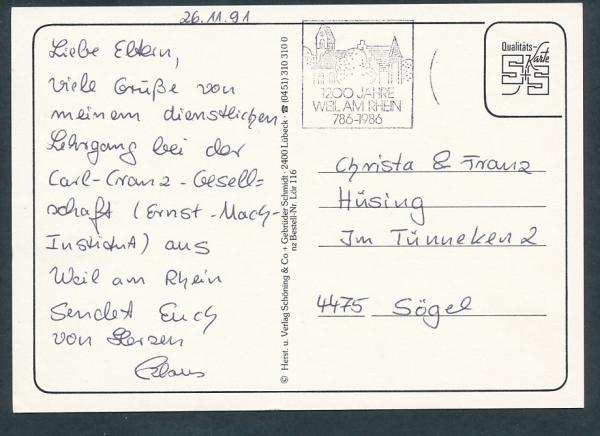 26.11.91
Liebe Eltern,
viele Grüße von
meinem dienstlichen
Lehrgang bei der
Carl-Cranz-Gesell=
schaft (Ernst-Mach-
Institut) aus
Weil am Rhein
Sendet Euch
von Herzen
Klaus
© Herst. u. Verlag Schöning & Co + Gebrüder Schmidt · 2400 Lübeck · ☎ (0451) 310 310 0
nz Bestell-Nr. Lör 116
1200 JAHRE
WEIL AM RHEIN
786-1986
Qualitäts-
Karte
S+S
Christa & Franz
Hüsing
Im Tünneken 2
4475 Sögel